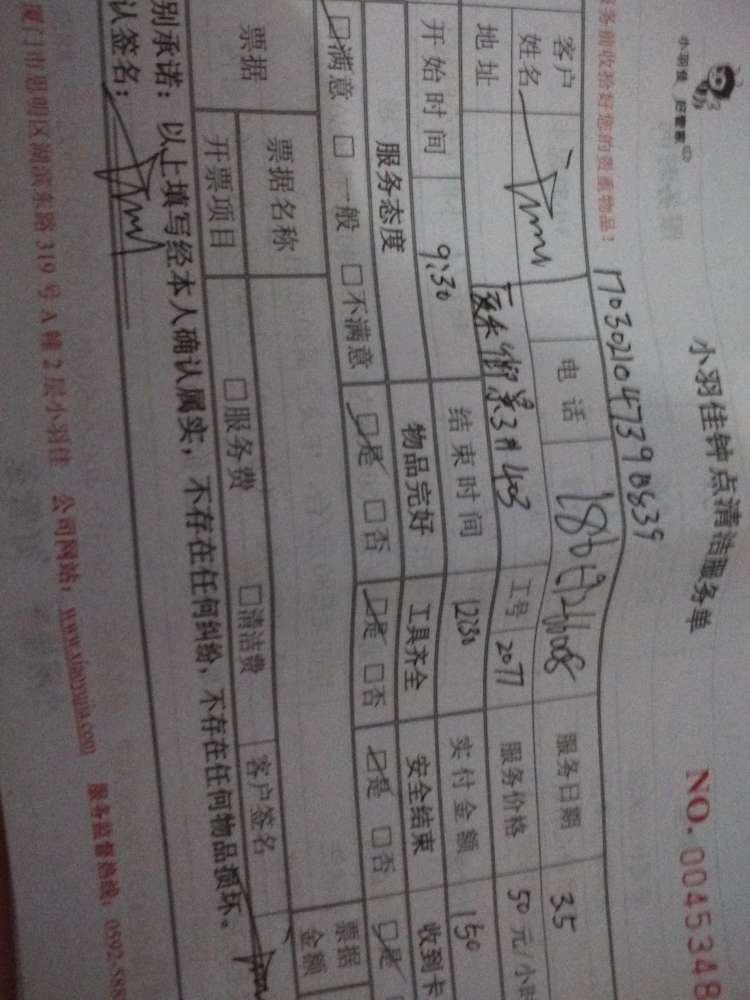 小羽佳 好管家
小羽佳钟点清洁服务单
NO. 0045348
务前收拾好您的贵重物品！
17030210473908639
客户姓名
电话
服务日期 3.5
地址
3#403
工号 2077
服务价格 50元/小时
开始时间 9:30
结束时间 12:30
实付金额 150
服务态度 物品完好 工具齐全 安全结束 收到卡
☑满意 □一般 □不满意 ☑是 □否 ☑是 □否 ☑是 □否 ☑是
票据
票据名称
票据金额
开票项目 □服务费 □清洁费 客户签名
别承诺：以上填写经本人确认属实，不存在任何纠纷，不存在任何物品损坏。
认签名：
厦门市思明区湖滨东路319号A幢2层小羽佳 公司网站：www.xiaoyujia.com 服务监督热线：0592-588